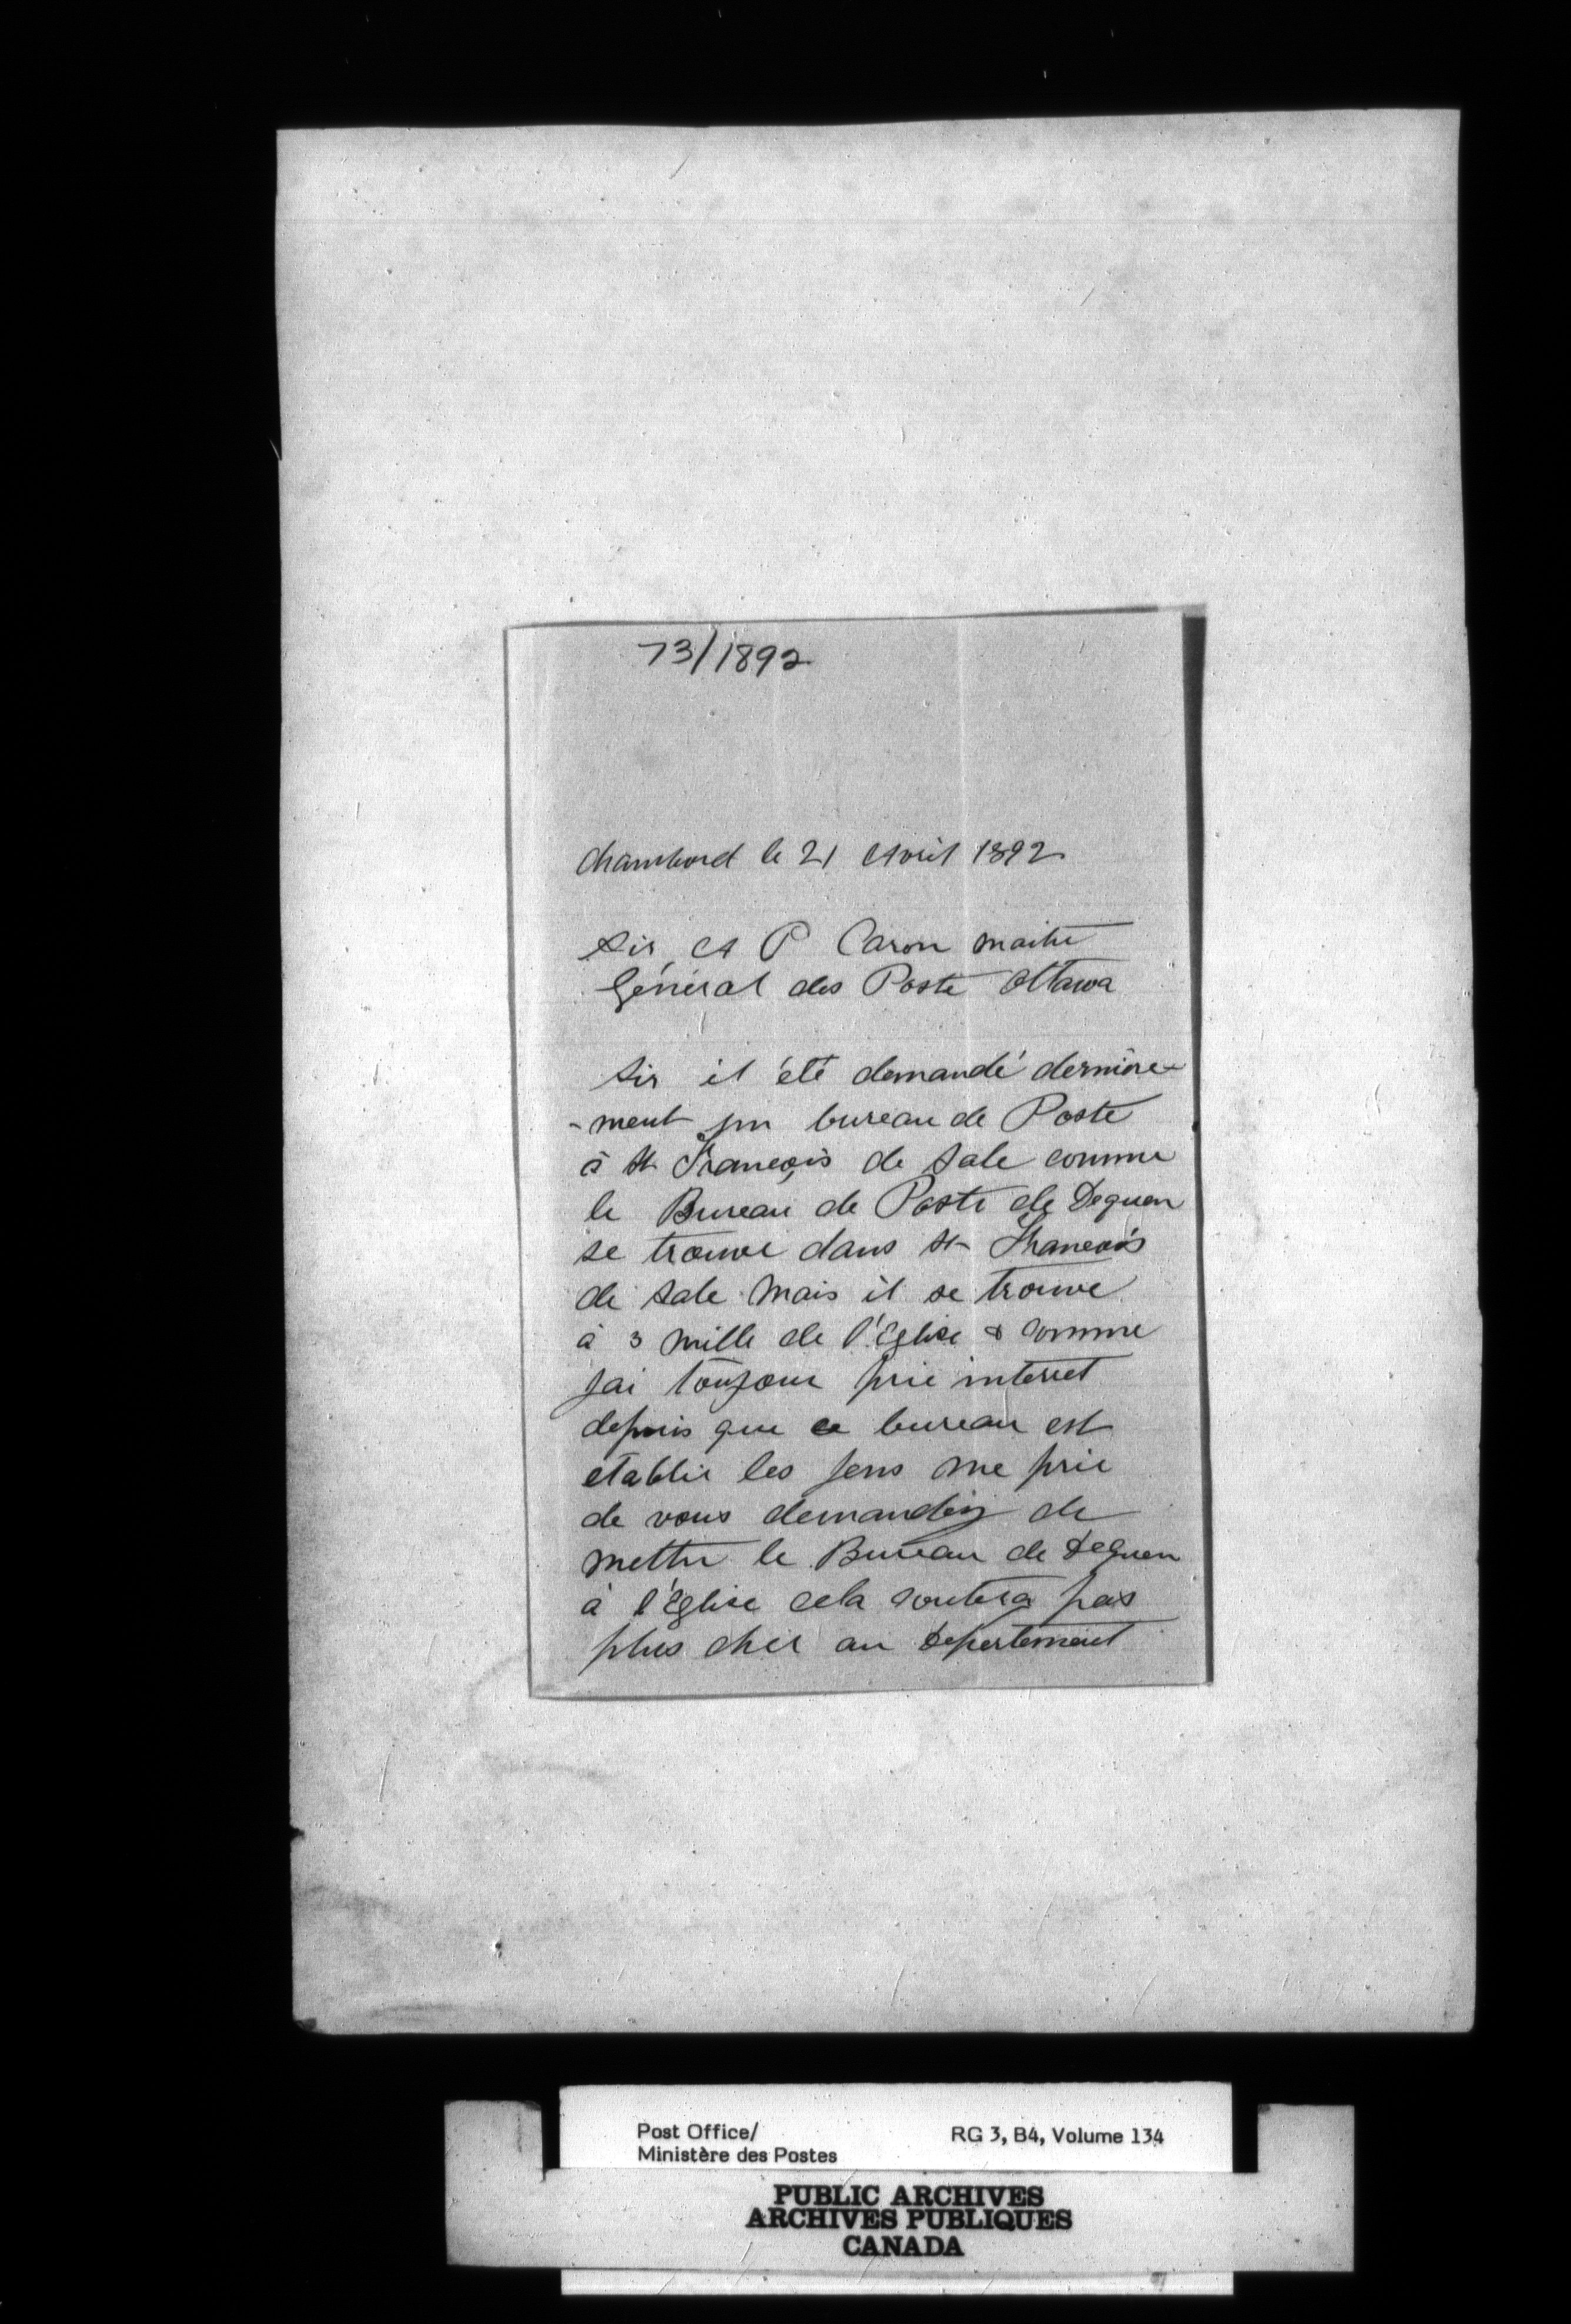 73/1892
Chambord le 21 Avril 1892
Sir A P Caron maitre
Général des Poste Ottawa
Sir il été demandé dernière-
-ment un bureau de Poste
à St François de Sale comme
le Bureau de Poste de Dequen
se trouve dans St François
de Sale mais il se trouve
à 3 mille de l'Eglise & comme
jai toujour prie interret
depuis que ce bureau est
etablie les jens me prie
de vous demandéz de
mettre le Bureau de Dequen
à l'Eglise cela coutera pas
plus cher au Departement
Post Office/
Ministère des Postes
RG 3, B4, Volume 134
PUBLIC ARCHIVES
ARCHIVES PUBLIQUES
CANADA